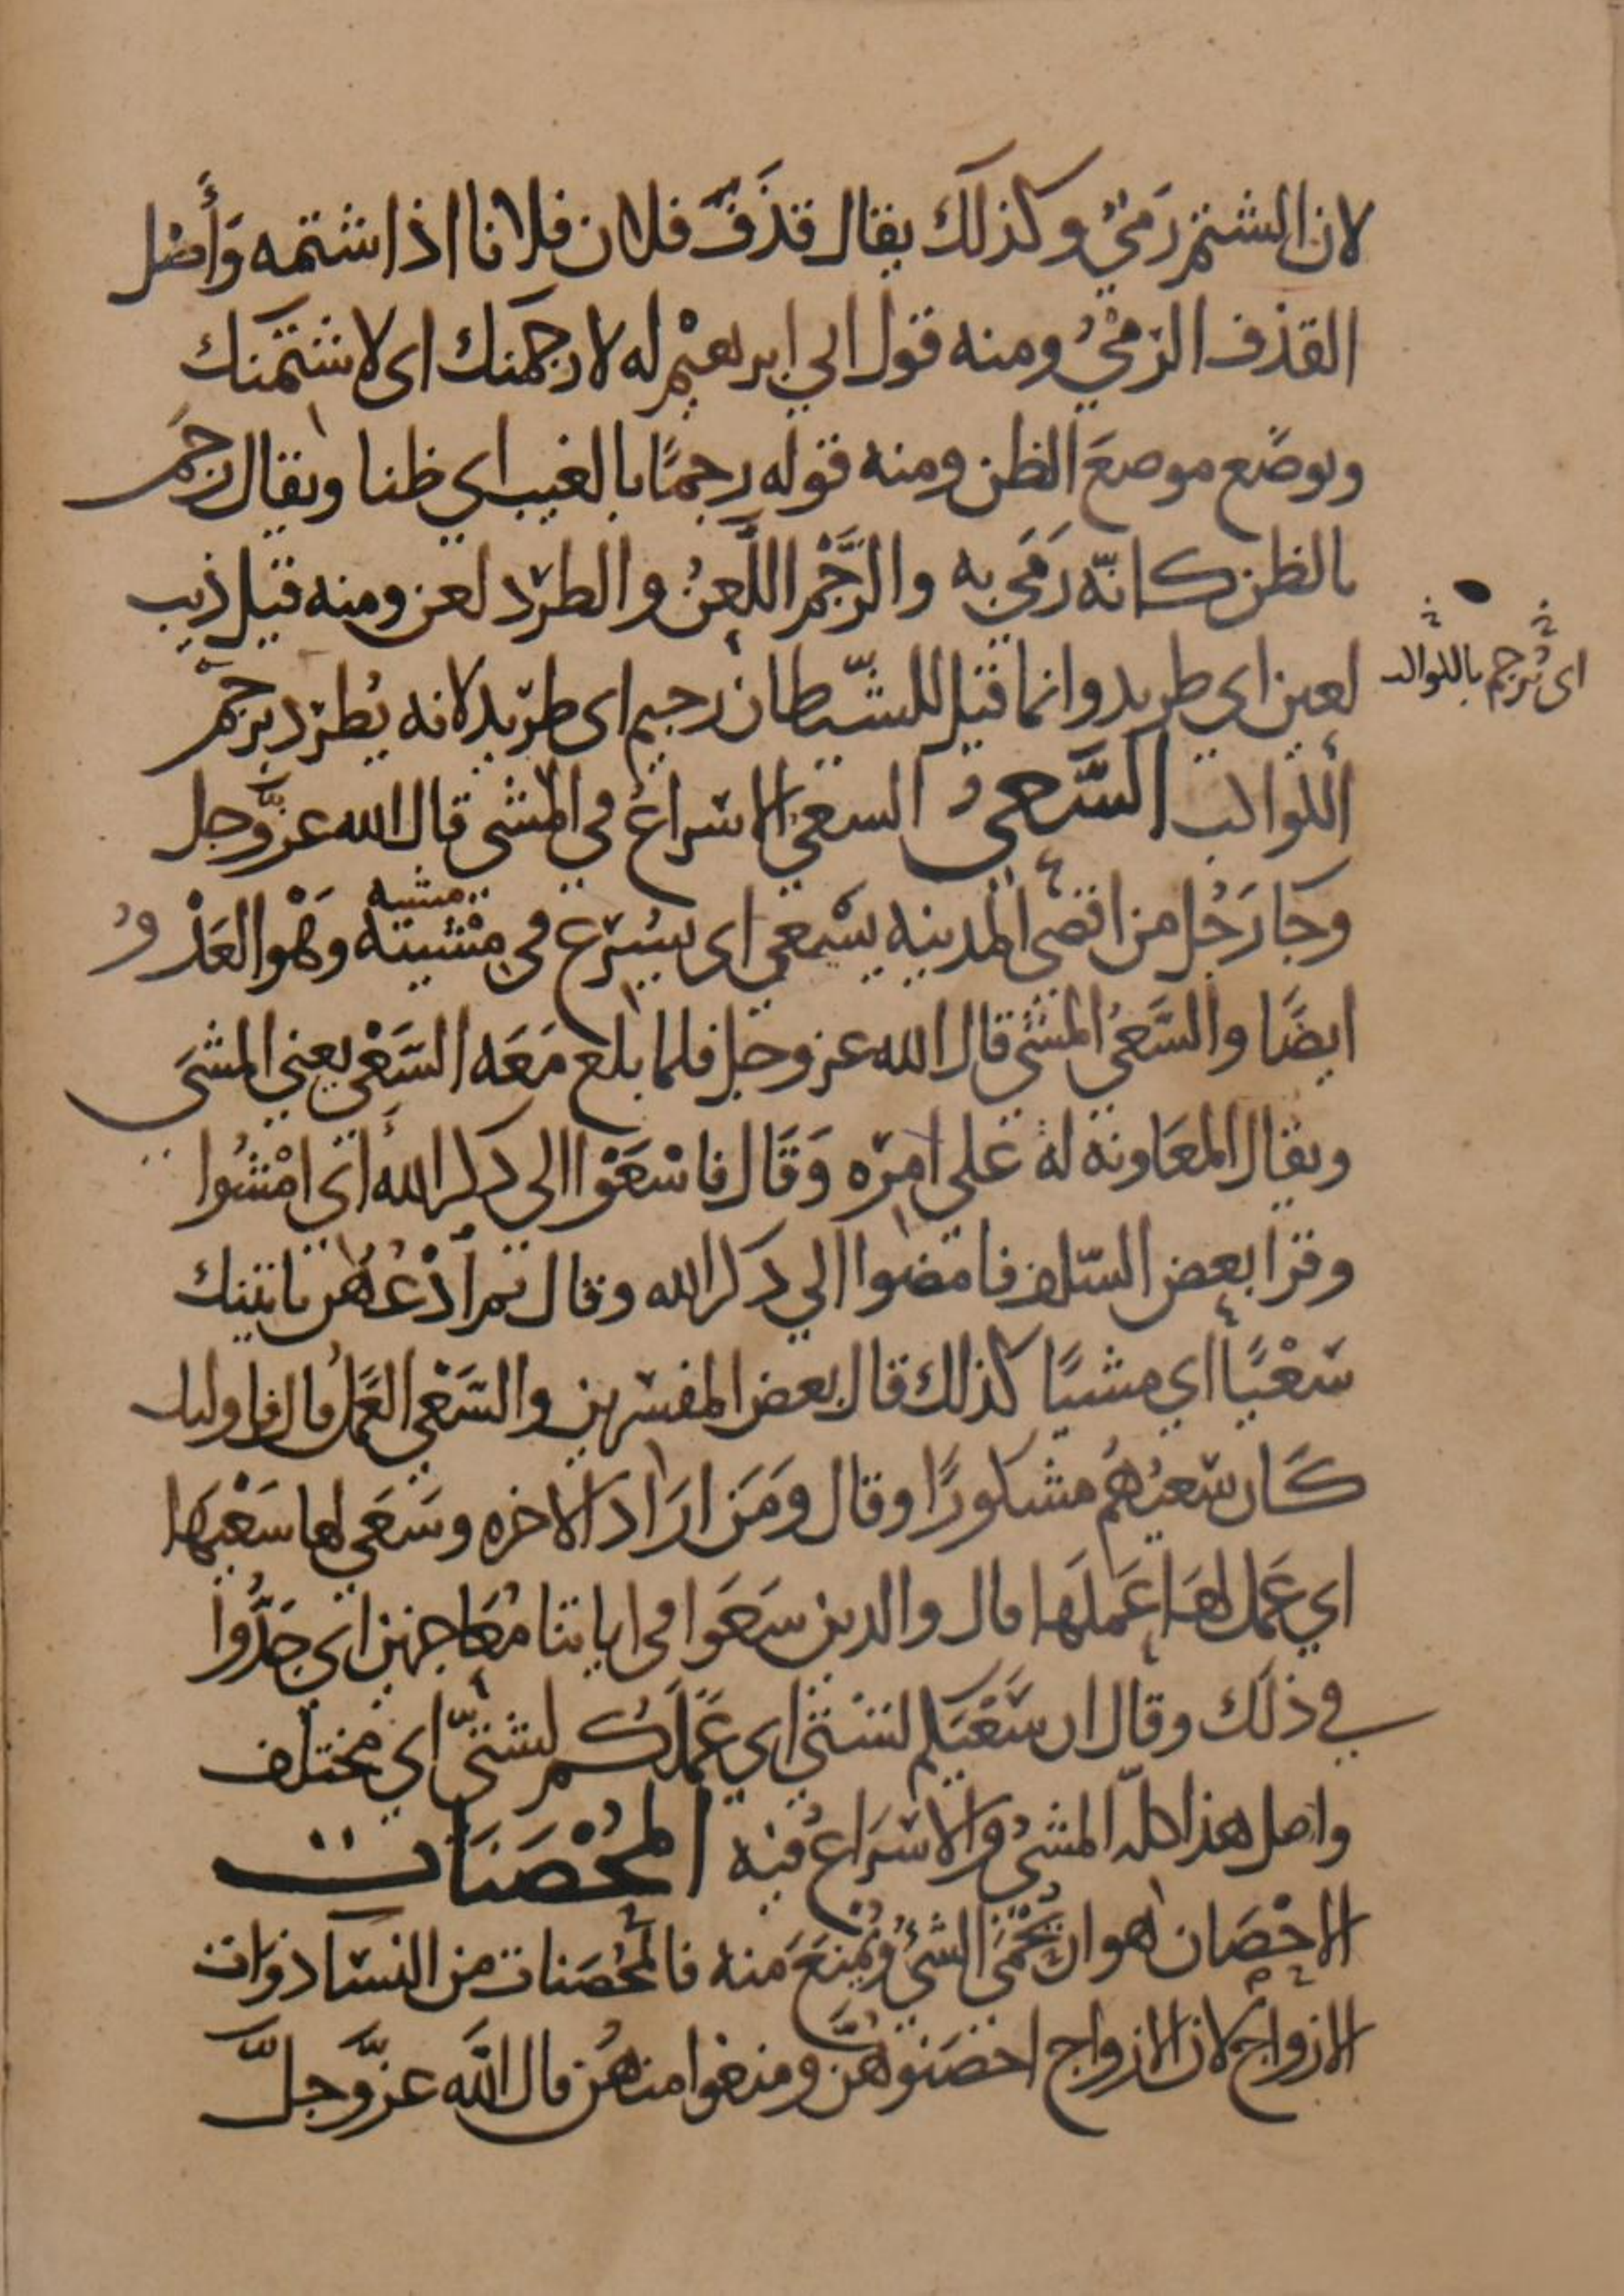 لان الشتم رَميٌ وكذلك يقال قذَفَ فلان فلانا اذا شتمه وَأَصْل
القذف الرّمْيُ ومنه قول ابي ابرهيْم له لارجمنك اى لاشتمنك
ويوضَع موضعَ الظن ومنه قوله رجمًا بالغيب اي ظنا ويقال رجَمَ
بالظن كانّه رَمَى به والرَّجْم اللَّعنُ والطرْد لعن ومنه قيل ذيب
لعين اى طريد وانما قيل للشّيطان رجيم اى طرْيد لانه يُطرَد برجَمْ
اى تُرجم باللوالد
اللوالب السَّعىُ السعي الاسْراعُ في المشى قال الله عزّ وجل
وَجا رَجُل من اقصى المدينه يسْعي اى يسْرع في مِشْيته وَهْو العَدْوُ
مشيه
ايضًا والسَّعىُ المشي قال الله عز وجل فلما بلغ مَعَه السَعْي يعني المشىَ
ويقال المعَاونه له على امرْه وَقَال فاسْعَوْا الى ذكر الله اى امْشُوا
وقرا بعض السّلف فامضوا الي ذكر الله وقال ثم اَدْعُهُن ياتينك
سَعْيًا اي مشيًا كذلك قال بعض المفسرين والسَعْي العَمَلُ قال فاوليك
كَان سَعيُهُم مشكورًا وقال ومَن ارَادَ الاخره وسَعَى لها سَعْيَهَا
اي عَمل لهَا عَملَهَا قال والدين سَعَوا في اياتنا مُعَاجزين اى جَدُّوا
في ذلك وقال ان سَعْيَكم لشتى اي عَمَلَكُم لشتّى اي مختلف
واصل هذا كلّه المشىُ والاسْرَاعُ فيه المُحْصَنَات
الاحْصَان هو ان يُحْمَى الشىُ ويُمنَعَ منه فالمحُصَنات من النسَا ذوَات
الازواج لان الازواج احْصَنوهُنَّ ومنعوا منهُن قال اللَّه عزَّ وجلَّ